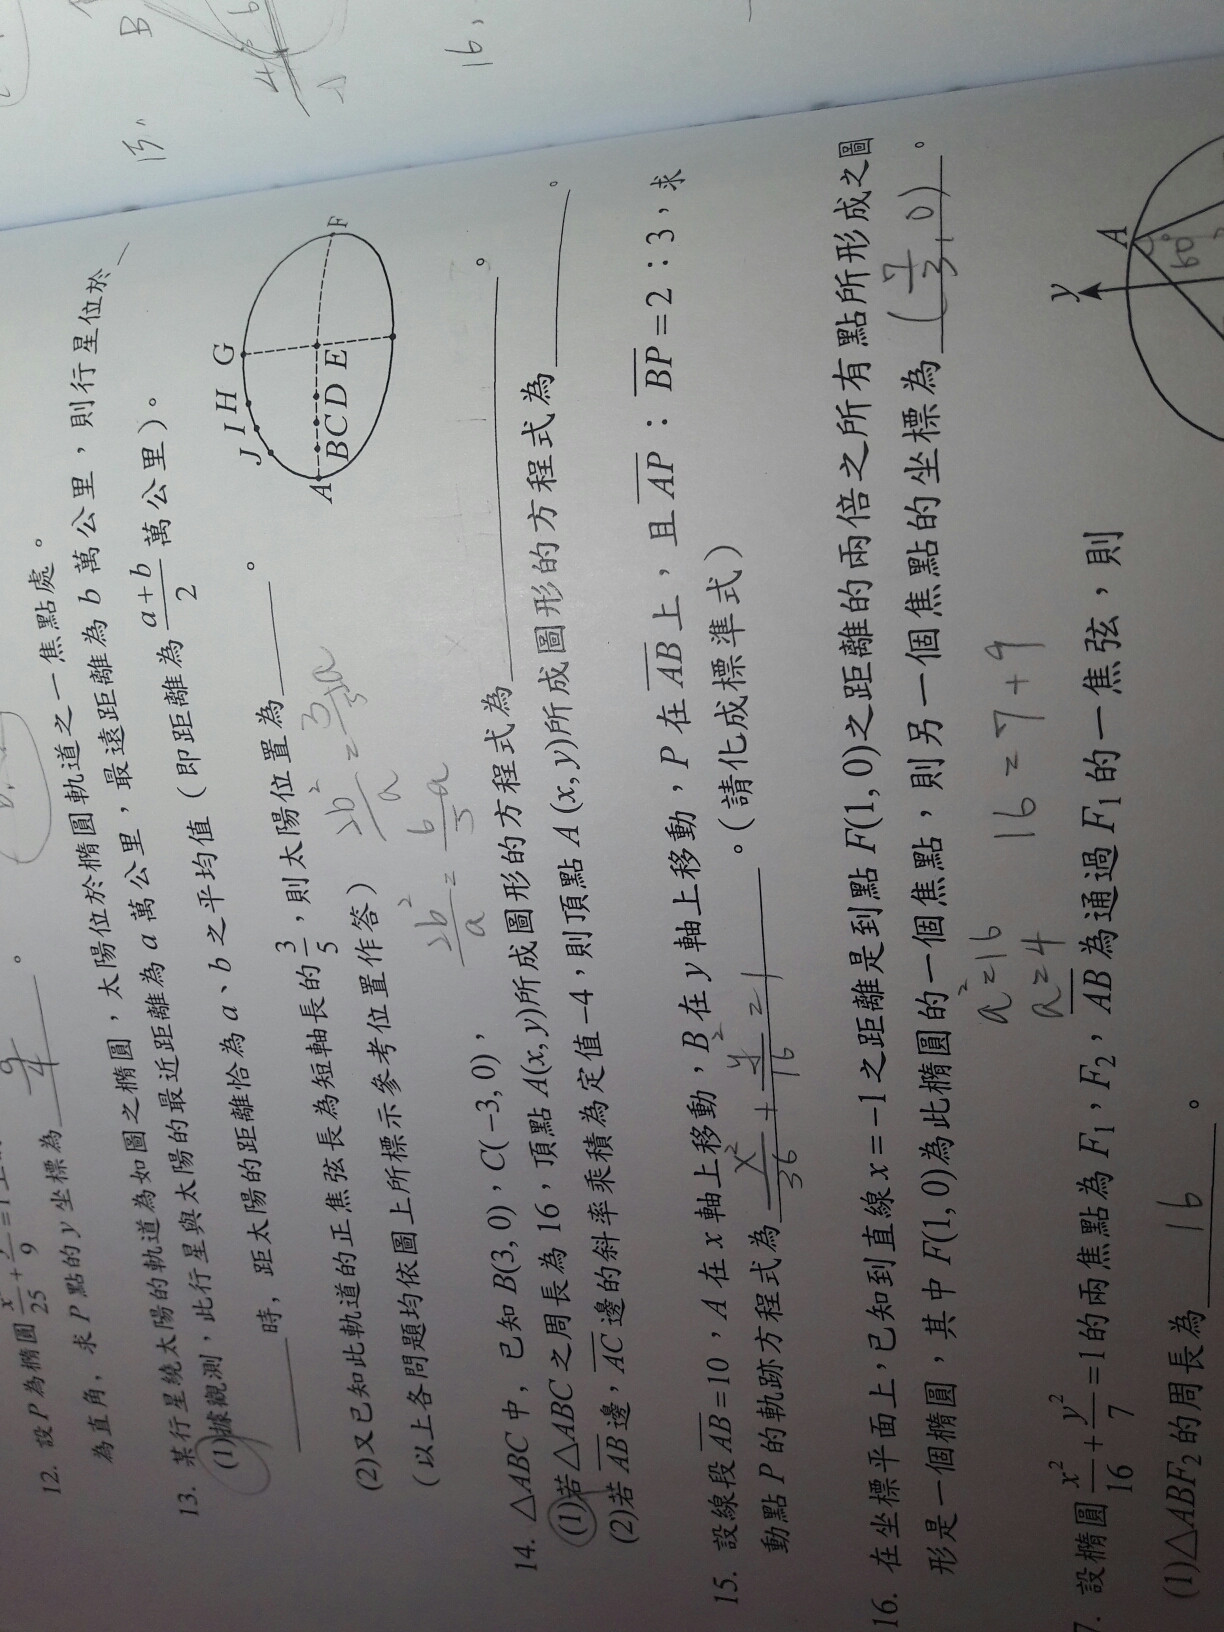 B
4
b
15.
16.
12. 設P為橢圓 x²/25 + y²/9 = 1
為直角,求P點的y坐標為 9/4 。
13. 某行星繞太陽的軌道為如圖之橢圓,太陽位於橢圓軌道之一焦點處。
(1)據觀測,此行星與太陽的最近距離為a萬公里,最遠距離為b萬公里,則行星位於
時,距太陽的距離恰為a、b之平均值(即距離為 a+b/2 萬公里)。
(2)又已知此軌道的正焦弦長為短軸長的 3/5,則太陽位置為 。
(以上各問題均依圖上所標示參考位置作答)
2b²/a = 3/5a
2b²/a = 6/5a
J I H G
A B C D E F
14. △ABC中,已知B(3, 0),C(−3, 0),
(1)若△ABC之周長為16,頂點A(x, y)所成圖形的方程式為 。
(2)若AB邊,AC邊的斜率乘積為定值−4,則頂點A(x, y)所成圖形的方程式為 。
15. 設線段AB=10,A在x軸上移動,B在y軸上移動,P在AB上,且AP:BP=2:3,求
動點P的軌跡方程式為 x²/36 + y²/16 = 1 。(請化成標準式)
16. 在坐標平面上,已知到直線x=−1之距離是到點F(1, 0)之距離的兩倍之所有點所形成之圖
形是一個橢圓,其中F(1, 0)為此橢圓的一個焦點,則另一個焦點的坐標為 (7/3, 0) 。
a²=16
a=4
16=7+9
7. 設橢圓 x²/16 + y²/7 = 1的兩焦點為F₁,F₂,AB為通過F₁的一焦弦,則
(1)△ABF₂的周長為 16 。
y
A
60°